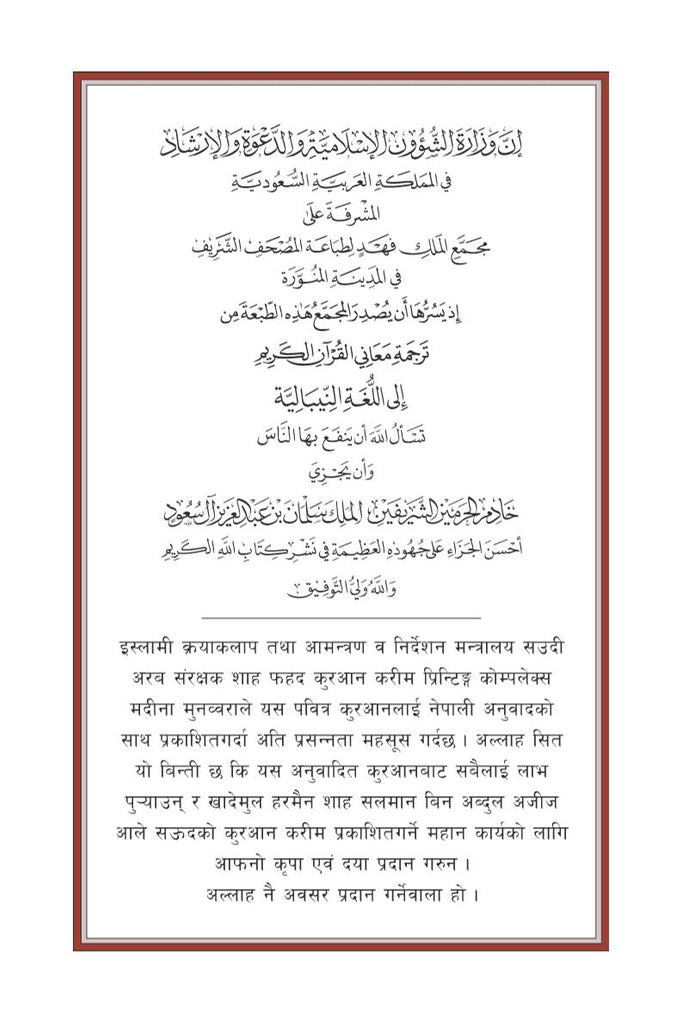 إِنَّ وَزَارَةَ الشُّؤُونِ الإِسْلَامِيَّةِ وَالدَّعْوَةِ وَالإِرْشَادِ
فِي المَمْلَكَةِ العَرَبِيَّةِ السُّعُودِيَّةِ
المُشْرِفَةَ عَلَى
مُجَمَّعِ المَلِكِ فَهْدٍ لِطِبَاعَةِ المُصْحَفِ الشَّرِيفِ
فِي المَدِينَةِ المُنَوَّرَةِ
إِذْ يَسُرُّهَا أَنْ يُصْدِرَ المُجَمَّعُ هَذِهِ الطَّبْعَةَ مِن
تَرْجَمَةِ مَعَانِي القُرْآنِ الكَرِيمِ
إِلَى اللُّغَةِ النِّيبَالِيَّةِ
تَسْأَلُ اللَّهَ أَنْ يَنْفَعَ بِهَا النَّاسَ
وَأَنْ يَجْزِيَ
خَادِمَ الحَرَمَيْنِ الشَّرِيفَيْنِ المَلِكَ سَلْمَانَ بْنَ عَبْدِ العَزِيزِ آل سُعُودٍ
أَحْسَنَ الجَزَاءِ عَلَى جُهُودِهِ العَظِيمَةِ فِي نَشْرِ كِتَابِ اللَّهِ الكَرِيمِ
وَاللَّهُ وَلِيُّ التَّوْفِيقِ
इस्लामी क्रयाकलाप तथा आमन्त्रण व निर्देशन मन्त्रालय सउदी
अरब संरक्षक शाह फहद कुरआन करीम प्रिन्टिङ्ग कोम्पलेक्स
मदीना मुनव्वराले यस पवित्र कुरआनलाई नेपाली अनुवादको
साथ प्रकाशितगर्दा अति प्रसन्नता महसूस गर्दछ । अल्लाह सित
यो बिन्ती छ कि यस अनुवादित कुरआनबाट सबैलाई लाभ
पुऱ्याउन् र खादेमुल हरमैन शाह सलमान बिन अब्दुल अजीज
आले सऊदको कुरआन करीम प्रकाशितगर्ने महान कार्यको लागि
आफनो कृपा एवं दया प्रदान गरुन ।
अल्लाह नै अवसर प्रदान गर्नेवाला हो ।